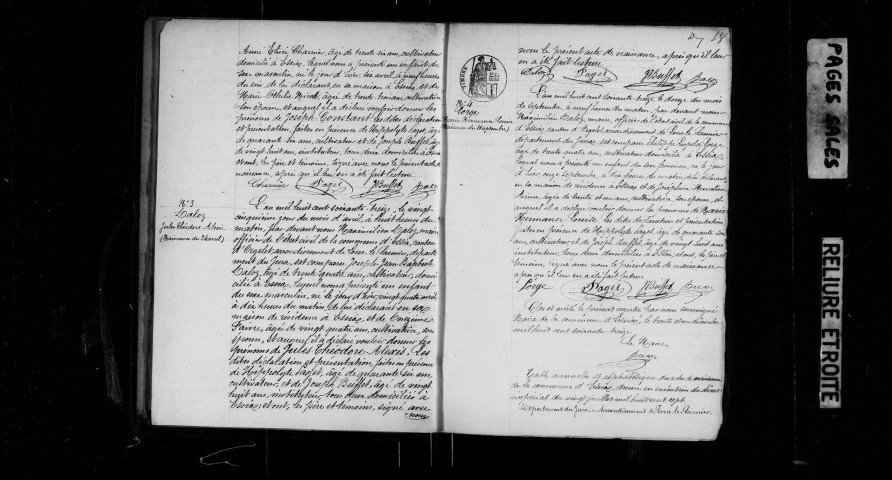 Aimé Elisée Charnier, âgé de trente six ans, cultivateur
domicilié à Essia, lequel nous a présenté un enfant du
sexe masculin, né le jour d'hier, six avril, à neuf heures
du soir, de lui déclarant en sa maison à Essia, et de
Marie Othilie âgée de trente ans, cultivatrice
son épouse, et auquel il a déclaré vouloir donner les
prénoms de Joseph Constant. Les dites déclaration
et présentation, faites en présence de Hippolyte Paget, âgé
de quarante six ans, cultivateur et de Joseph Buffet, âgé
de vingt huit ans, instituteur, tous deux domiciliés à Essia
et ont, les père et témoins, signé avec nous le présent acte de
naissance, après qu'il leur en a été fait lecture.
Charnier Paget JBuffet Daloz
N° 3
Daloz
Jules Théodore Alexis
L'an mil huit cent soixante treize, le vingt-
cinquième jour du mois d'avril, à huit heures du
matin, par devant nous Maximilien Daloz, maire
officier de l'état civil de la commune d'Essia, canton
d'Orgelet, arrondissement de Lons le Saunier, départe-
ment du Jura, est comparu Joseph Jean Baptiste
Daloz, âgé de trente quatre ans, cultivateur, domi-
cilié à Essia, lequel nous a présenté un enfant
du sexe masculin, né le jour d'hier, vingt quatre avril,
à dix heures du matin, de lui déclarant en sa
maison de résidence à Essia, et de Onézime
Faivre, âgée de vingt quatre ans, cultivatrice, son
épouse, et auquel il a déclaré vouloir donner les
prénoms de Jules Théodore Alexis. Les
dites déclaration et présentation, faites en présence
de Hippolyte Paget, âgé de quarante six ans
cultivateur, et de Joseph Buffet, âgé de vingt
huit ans, instituteur, tous deux domiciliés à
Essia; et ont, les père et témoins, signé avec
nous
nous le présent acte de naissance, après qu'il leur
en a été fait lecture.
Daloz Paget JBuffet Daloz
N° 4
Lorge
L'an mil huit cent soixante treize, le douze du mois
de septembre, à neuf heures du matin, par devant nous
Maximilien Daloz, maire, officier de l'état civil de la commune
d'Essia, canton d'Orgelet, arrondissement de Lons le Saunier
département du Jura, est comparu Lorge
âgé de trente quatre ans, cultivateur, domicilié à Essia,
lequel nous a présenté un enfant du sexe féminin, né le jour
d'hier onze septembre, à dix heures du matin, de lui déclarant
en sa maison de résidence à Essia, et de Joséphine
âgée de trente ans, cultivatrice, son épouse, et
auquel il a déclaré vouloir donner les prénoms de Marie
Louise. Les dites déclaration et présentation
faites en présence de Hippolyte Paget, âgé de quarante six
ans, cultivateur, et de Joseph Buffet, âgé de vingt huit ans
instituteur, tous deux domiciliés à Essia, et ont, les père et
témoins, signé avec nous le présent acte de naissance
après qu'il leur en a été fait lecture
Lorge Paget JBuffet Daloz
Clos et arrêté le présent registre par nous soussigné
Maire de la commune d'Essia, le trente et un décembre
mil huit cent soixante treize.
Le Maire
Daloz
Table annuelle et alphabétique des actes de naissance
de la commune d'Essia, dressée en exécution du décret
impérial du vingt juillet mil huit cent sept.
Département du Jura - arrondissement de Lons le Saunier.
PAGES SALES
RELIURE ETROITE